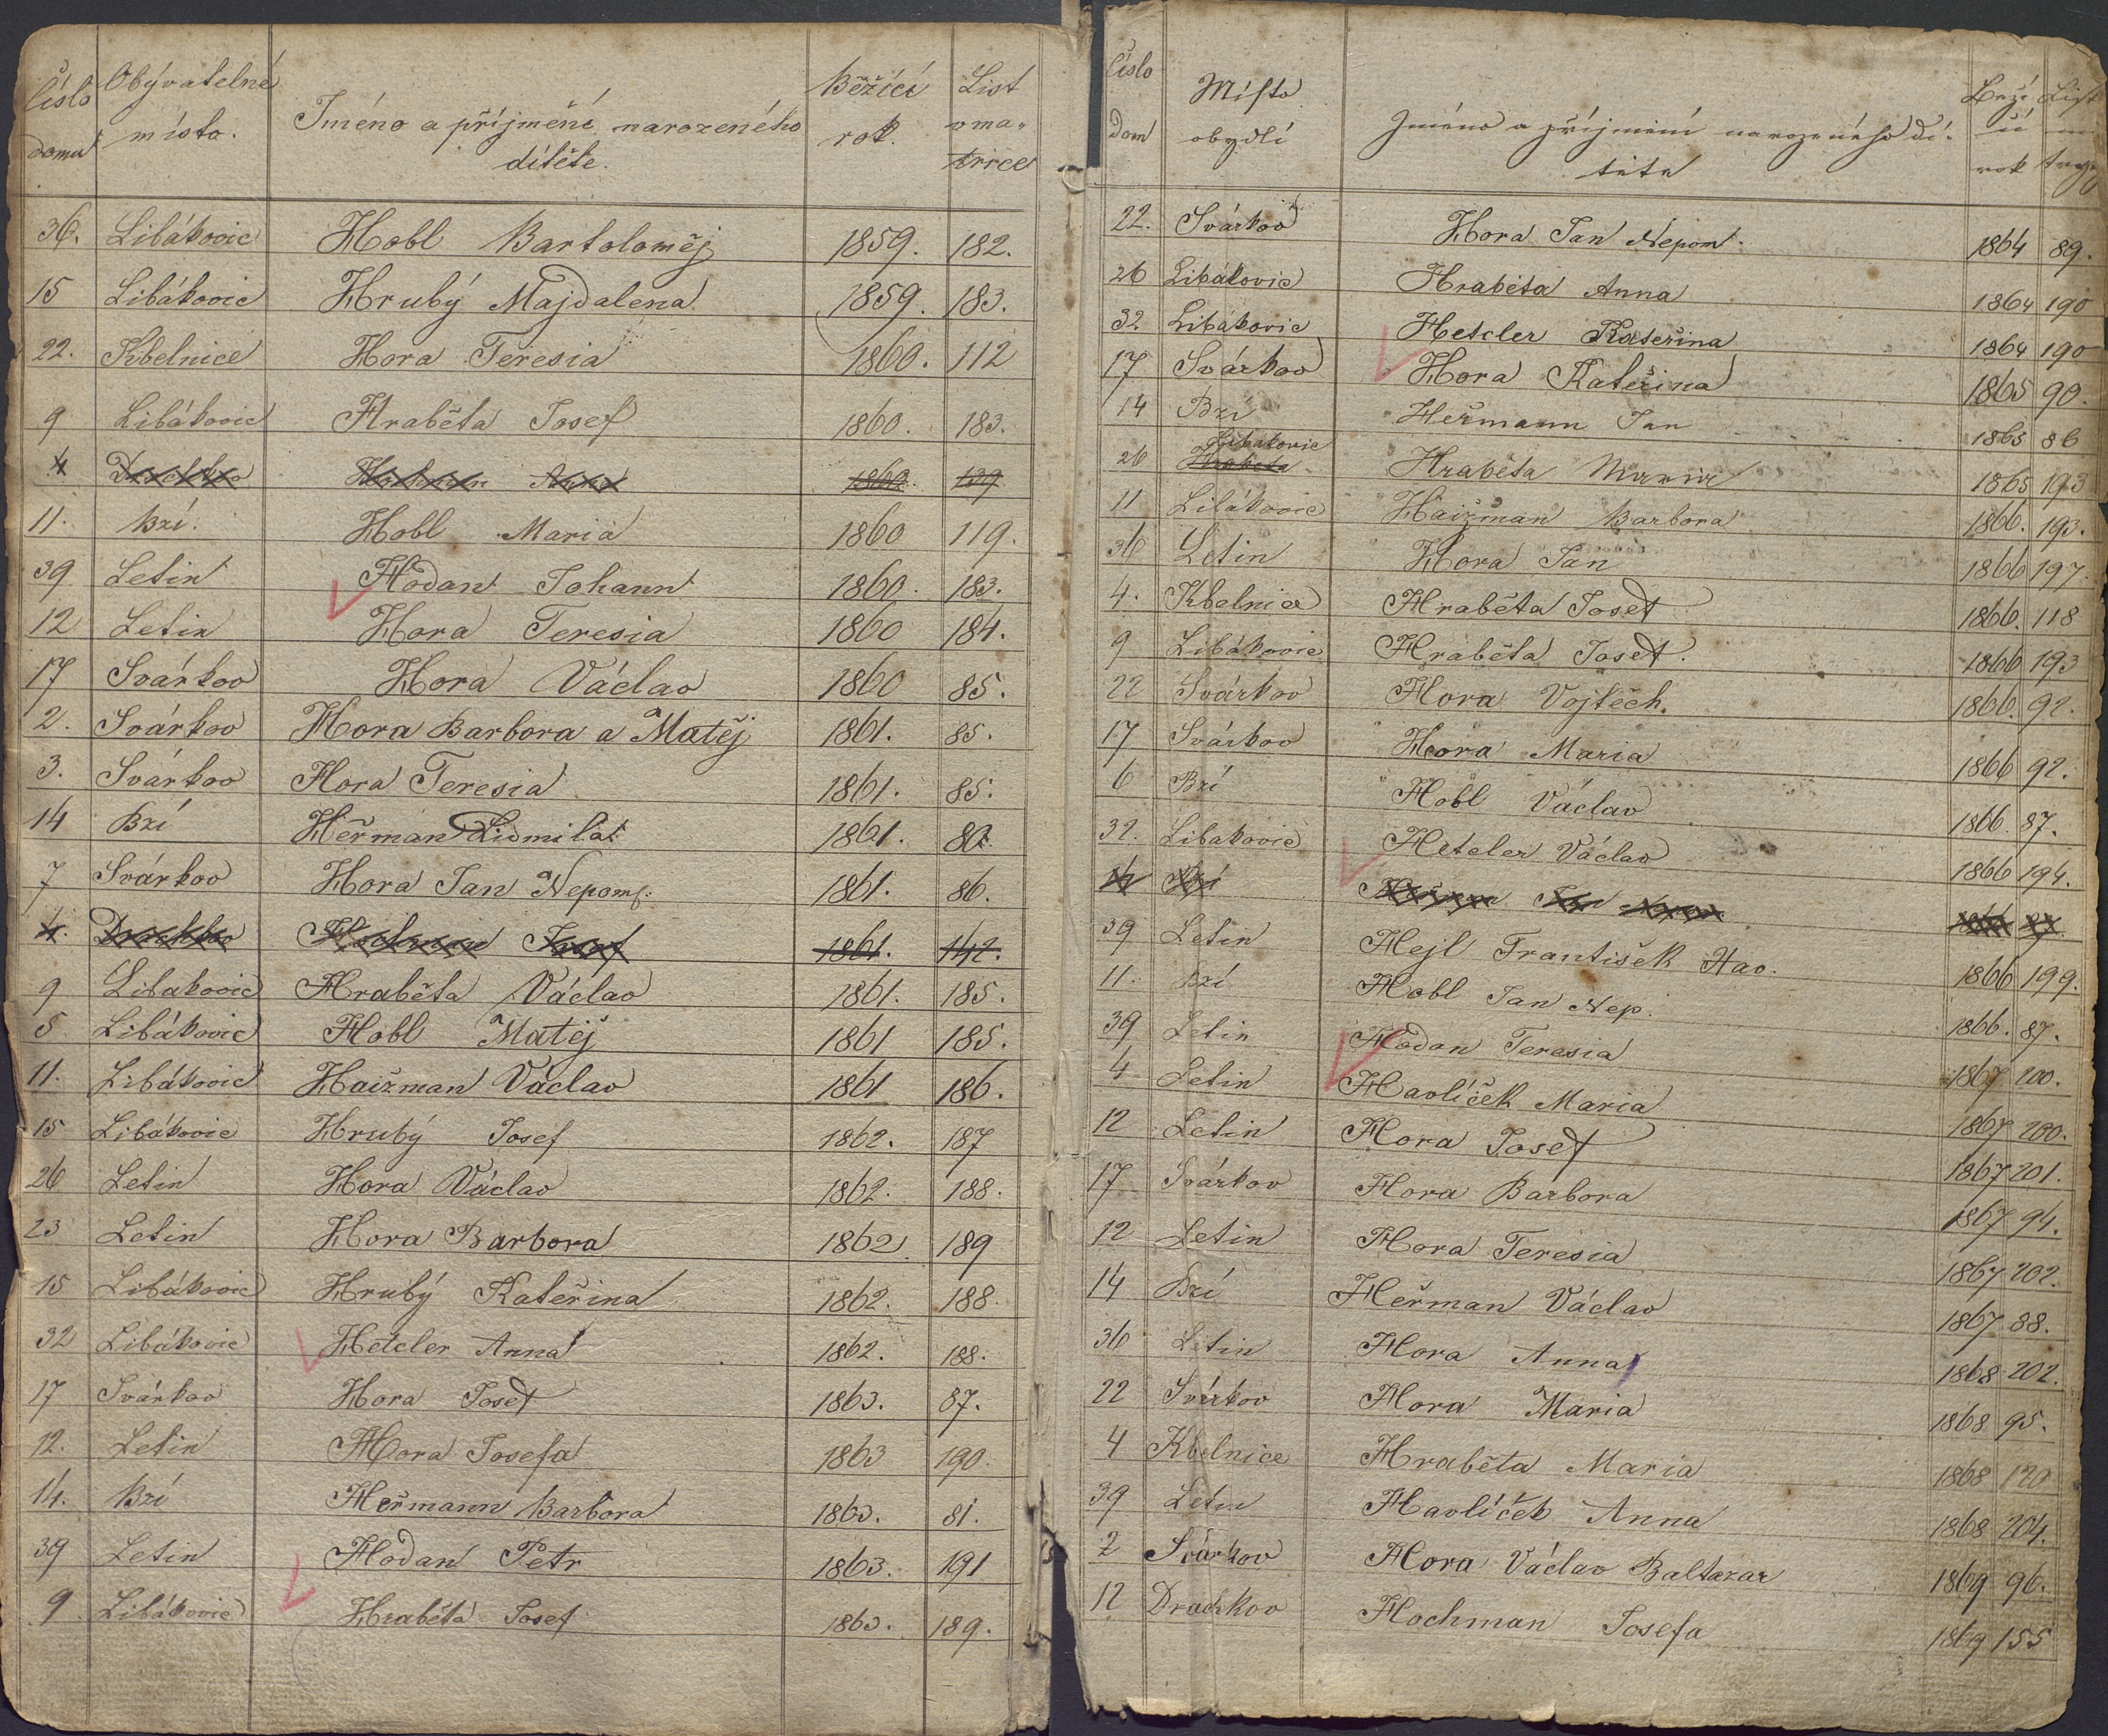 Číslo domu Obývatelné místo. Jméno a příjmení narozeného dítěte. Běžící rok. List v matrice
36. Libákovic Hobl Bartoloměj 1859. 182.
15 Libákovic Hrubý Majdalena 1859. 183.
22. Kbelnice Hora Teresia 1860. 112
9 Libákovic Hraběta Josef 1860. 183.
4 1860. 139
11. Bzí. Hobl Maria 1860 119.
39 Letin Hodan Johann 1860. 183.
12 Letin Hora Teresia 1860 184.
17 Svárkov Hora Václav 1860 85.
2. Svárkov Hora Barbora a Matěj 1861. 85.
3. Svárkov Hora Teresia 1861. 85.
14 Bzí Heřman Lidmila 1861. 80.
7 Svárkov Hora Jan Nepom. 1861. 86.
4. Josef 1861. 142.
9 Libakovic Hraběta Václav 1861. 185.
5 Libákovic Hobl Matěj 1861 185.
11. Libákovic Haizman Václav 1861 186.
15 Libákovic Hrubý Josef 1862. 187
26 Letin Hora Václav 1862. 188.
23 Letin Hora Barbora 1862 189
15 Libákovic Hrubý Kateřina 1862. 188.
32 Libákovic Hetcler Anna 1862. 188.
17 Svárkov Hora Josef 1863. 87.
12. Letin Hora Josefa 1863 190.
14. Bzí Heřmann Barbora 1863. 81.
39 Letin Hodan Petr 1863. 191
9 Libákovic Hraběta Josef 1863. 189.
Číslo dom Místo obydlí Jméno a příjmení narozeného dítěte Beží cí rok List
22. Svárkov Hora Jan Nepom. 1864 89.
26 Libákovic Hraběta Anna 1864 190
32 Libákovic Hetcler Kateřina 1864 190
17 Svárkov Hora Kateřina 1865 90.
14 Bzí Heřmann Jan 1865 86
26 Hraběta Libakovic Hraběta Maria 1865 193
11 Libákovic Haižman Barbora 1866. 193.
36 Letin Hora Jan 1866 197.
4. Kbelnice Hraběta Josef 1866. 118
9 Libákovic Hraběta Josef. 1866 193
22 Svárkov Hora Vojtěch. 1866. 92.
17 Svárkov Hora Maria 1866 92.
6 Bzí Hobl Václav 1866. 87.
32. Libakovic Hetcler Václav 1866 194.
14 Bzí Jan 1866
39 Letin Hejl František Hav. 1866 199.
11. Bzí Hobl Jan Nep. 1866. 87.
39 Letin Hodan Teresia 1867 200.
4 Letin Havlíček Maria 1867 200.
12 Letin Hora Josef 1867 201.
17 Svárkov Hora Barbora 1867 94.
12 Letin Hora Teresia 1867 202.
14 Bzí Heřman Václav 1867 88.
36 Letin Hora Anna 1868 202.
22 Svárkov Hora Maria 1868 95.
4 Kbelnice Hraběta Maria 1868 120
39 Letin Havlíček Anna 1868 204.
2 Svárkov Hora Václav Baltazar 1869 96.
12 Drachkov Hochman Josefa 1869 155